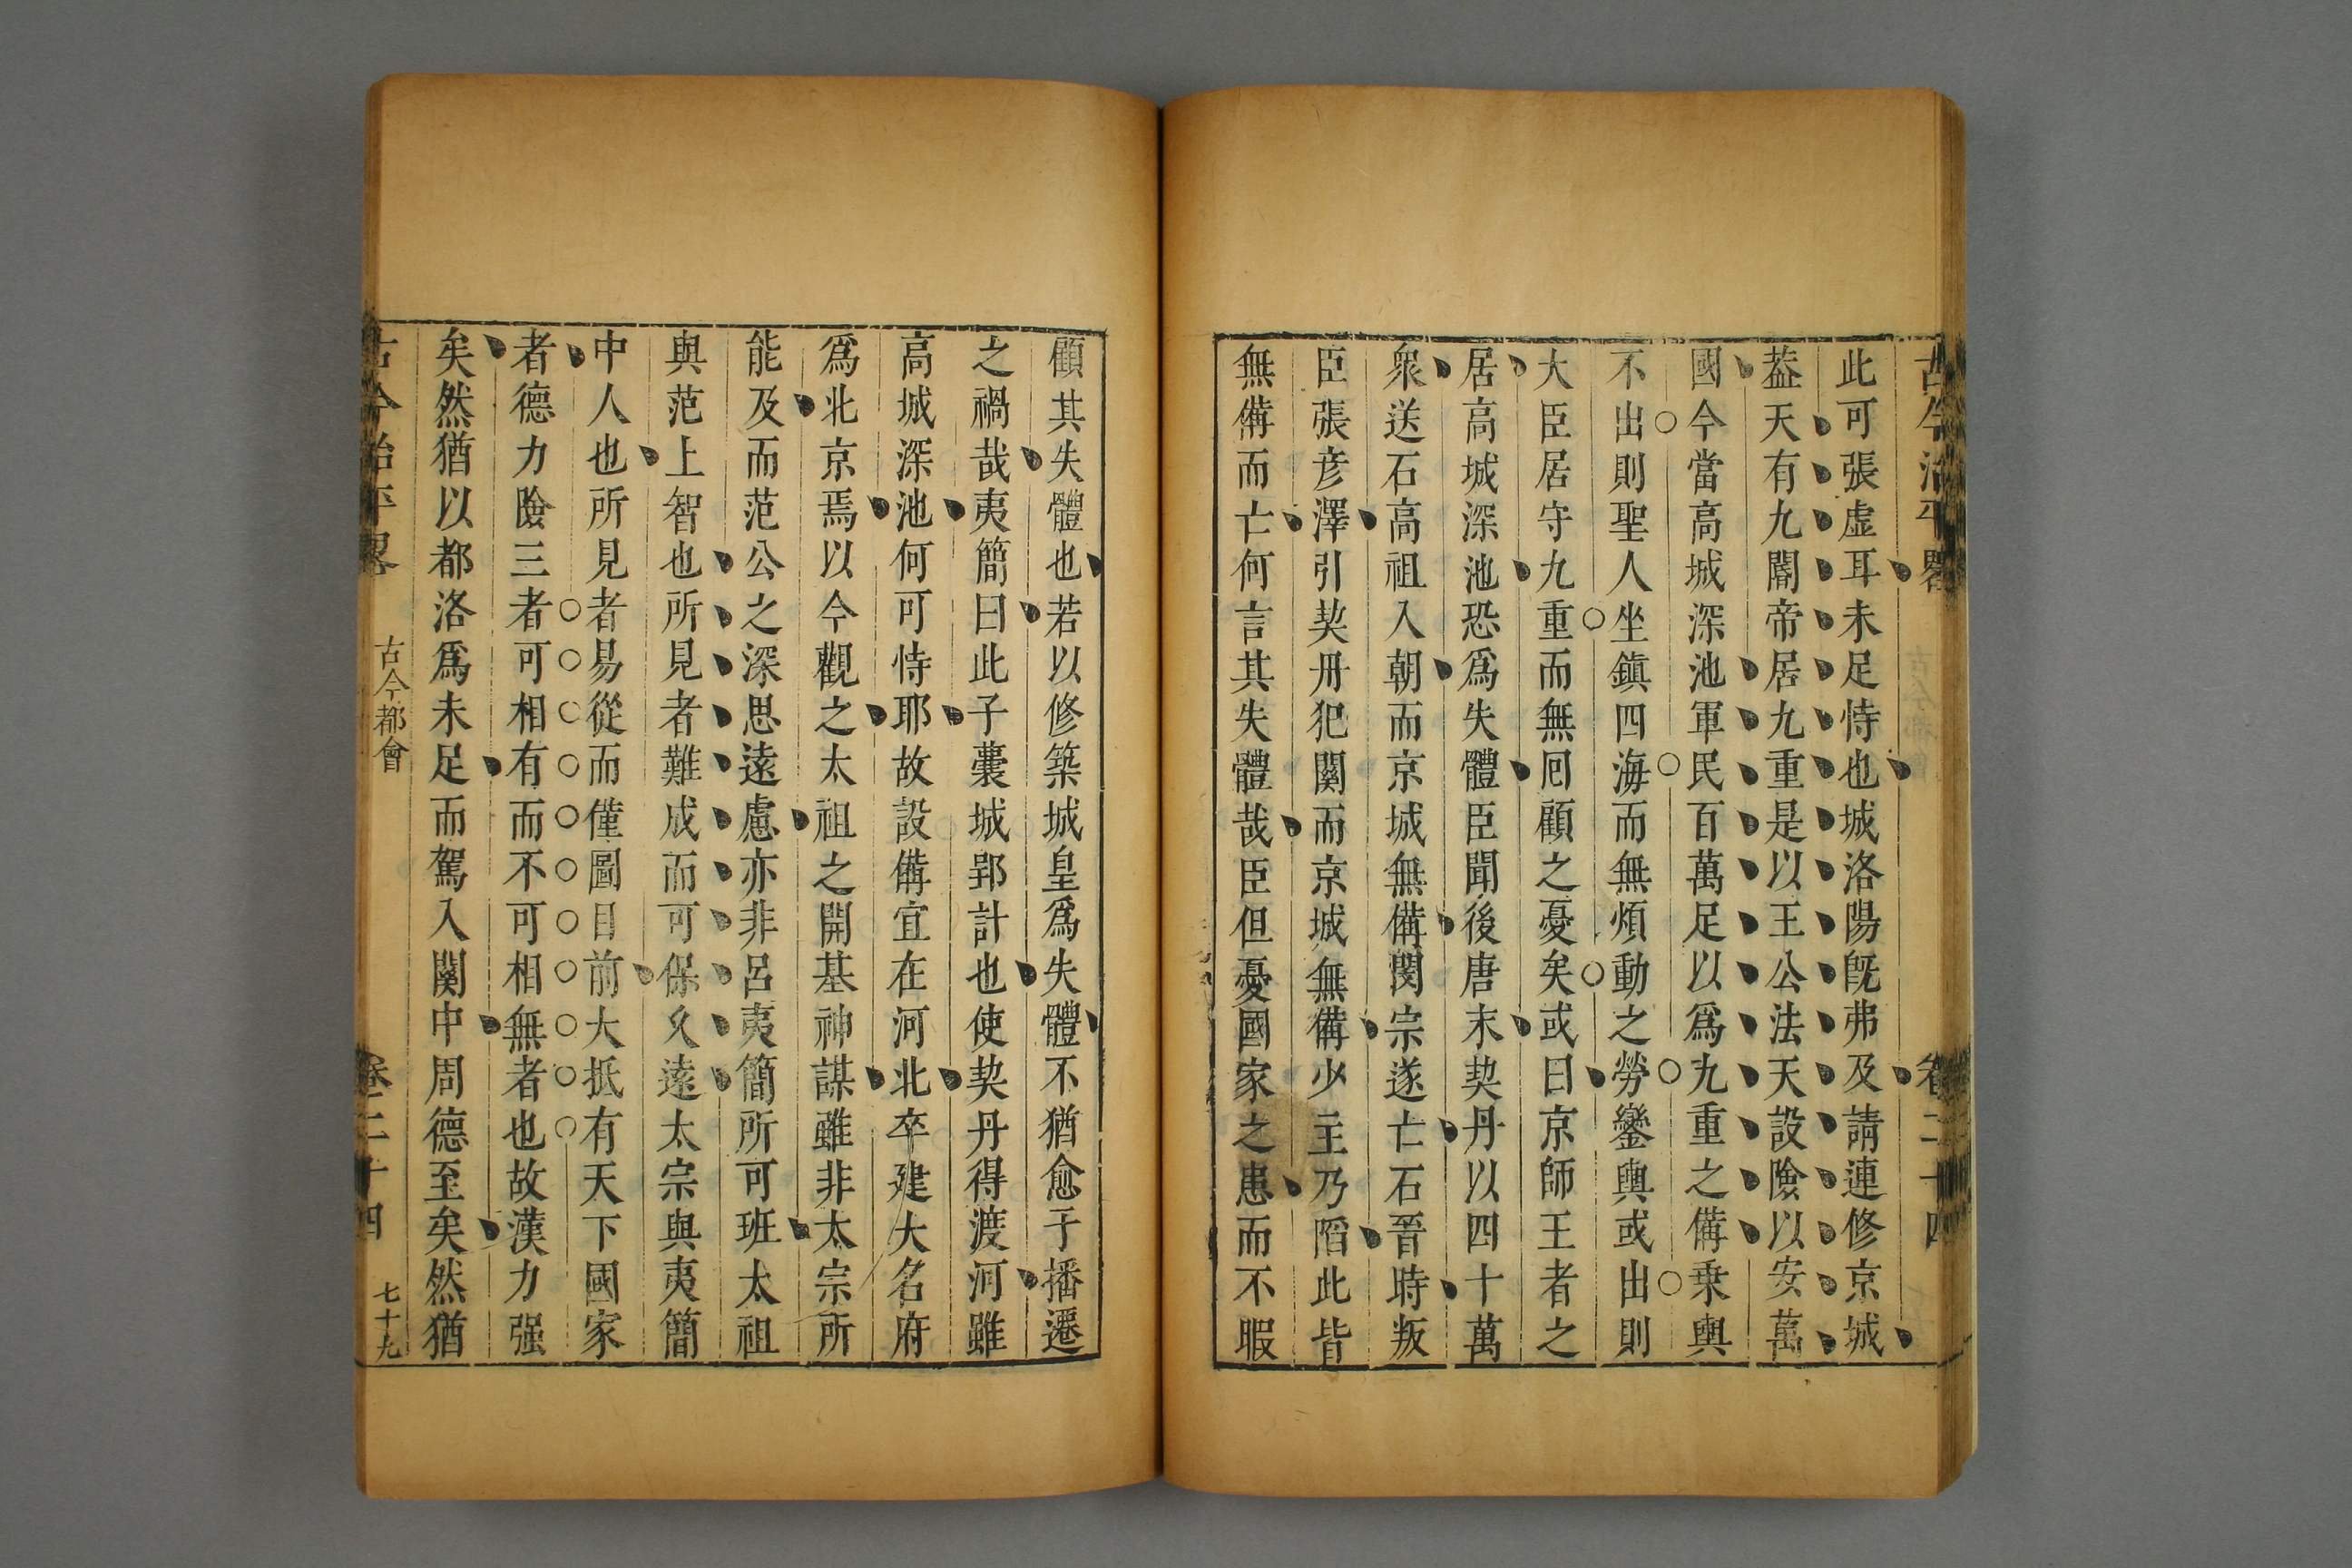 古今治平畧 卷二十四
此可張虛耳未足恃也城洛陽旣弗及請連修京城
葢天有九閽帝居九重是以王公法天設險以安萬
國今當高城深池軍民百萬足以爲九重之備乗輿
不出則聖人坐鎮四海而無煩動之勞鑾輿或出則
大臣居守九重而無囘顧之憂矣或曰京師王者之
居高城深池恐爲失體臣聞後唐末契丹以四十萬
衆送石高祖入朝而京城無備閔宗遂亡石晉時叛
臣張彥澤引契丹犯闕而京城無備少主乃陷此皆
無備而亡何言其失體哉臣但憂國家之患而不暇
顧其失體也若以修築城皇爲失體不猶愈于播遷
之禍哉夷簡曰此子囊城郢計也使契丹得渡河雖
高城深池何可恃耶故設備宜在河北卒建大名府
爲北京焉以今觀之太祖之開基神謀雖非太宗所
能及而范公之深思遠慮亦非呂夷簡所可班太祖
與范上智也所見者難成而可保久遠太宗與夷簡
中人也所見者易從而僅圖目前大抵有天下國家
者德力險三者可相有而不可相無者也故漢力强
矣然猶以都洛爲未足而駕入關中周德至矣然猶
古今治平畧 古今都會 卷二十四 七十九